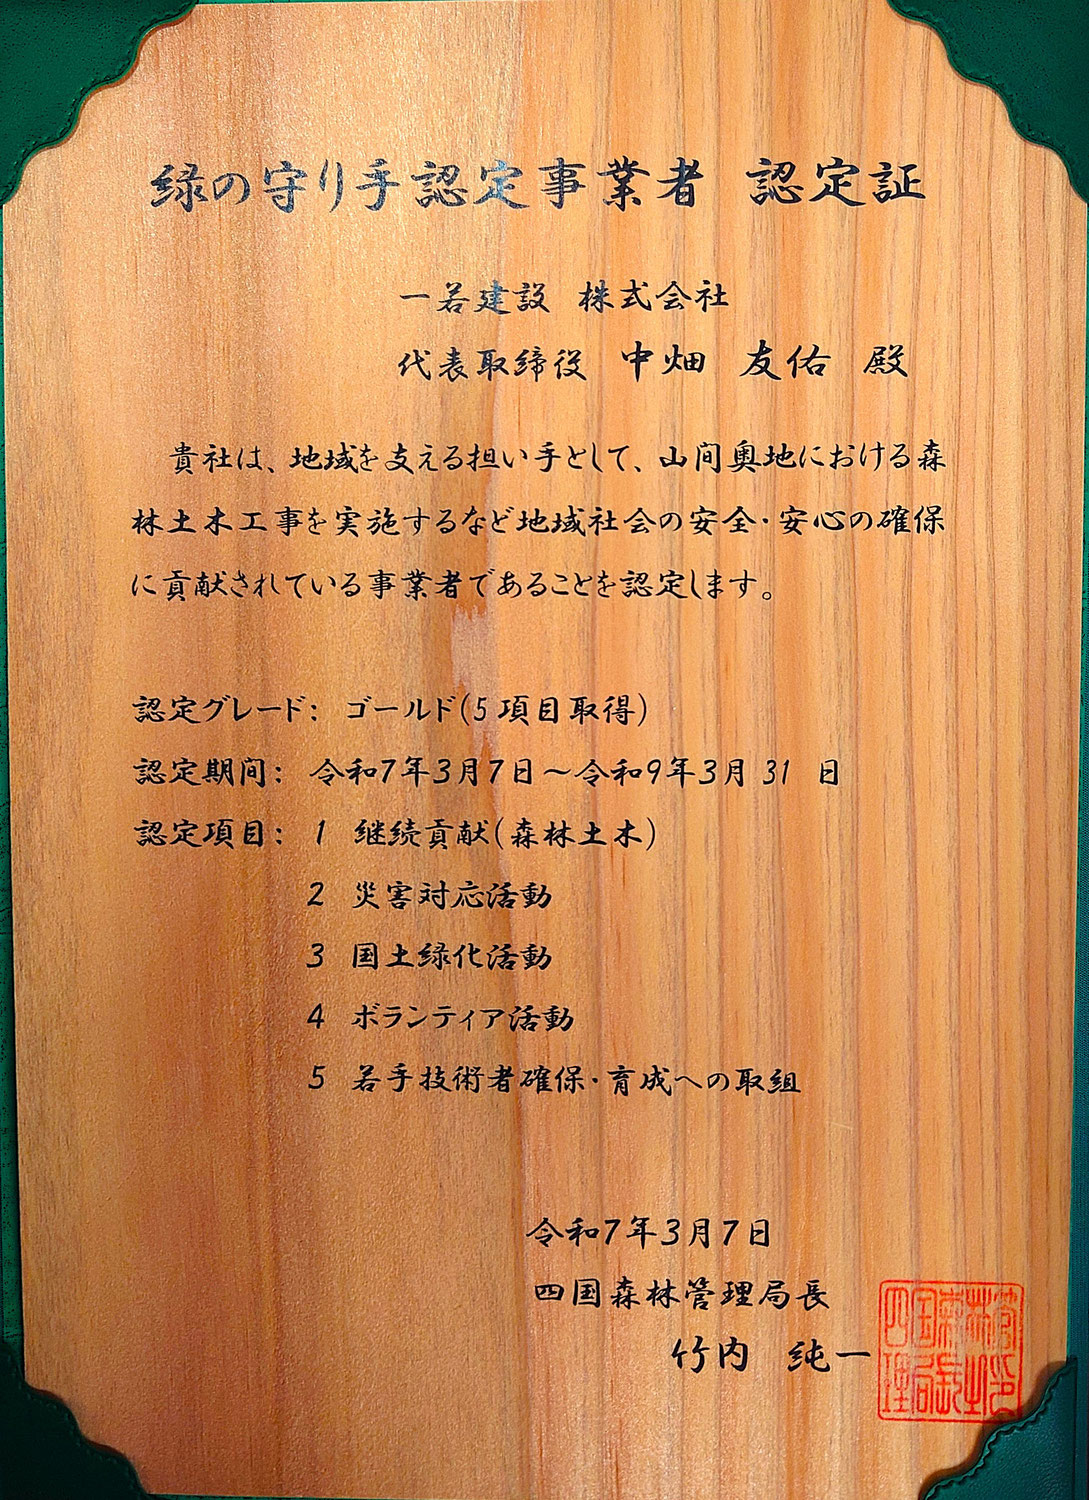 緑の守り手認定事業者 認定証
一若建設 株式会社
代表取締役 中畑 友佑 殿
貴社は、地域を支える担い手として、山間奥地における森
林土木工事を実施するなど地域社会の安全・安心の確保
に貢献されている事業者であることを認定します。
認定グレード: ゴールド(5項目取得)
認定期間: 令和7年3月7日~令和9年3月31 日
認定項目: 1 継続貢献(森林土木)
2 災害対応活動
3 国土緑化活動
4 ボランティア活動
5 若手技術者確保・育成への取組
令和7年3月7日
四国森林管理局長
竹内 純一